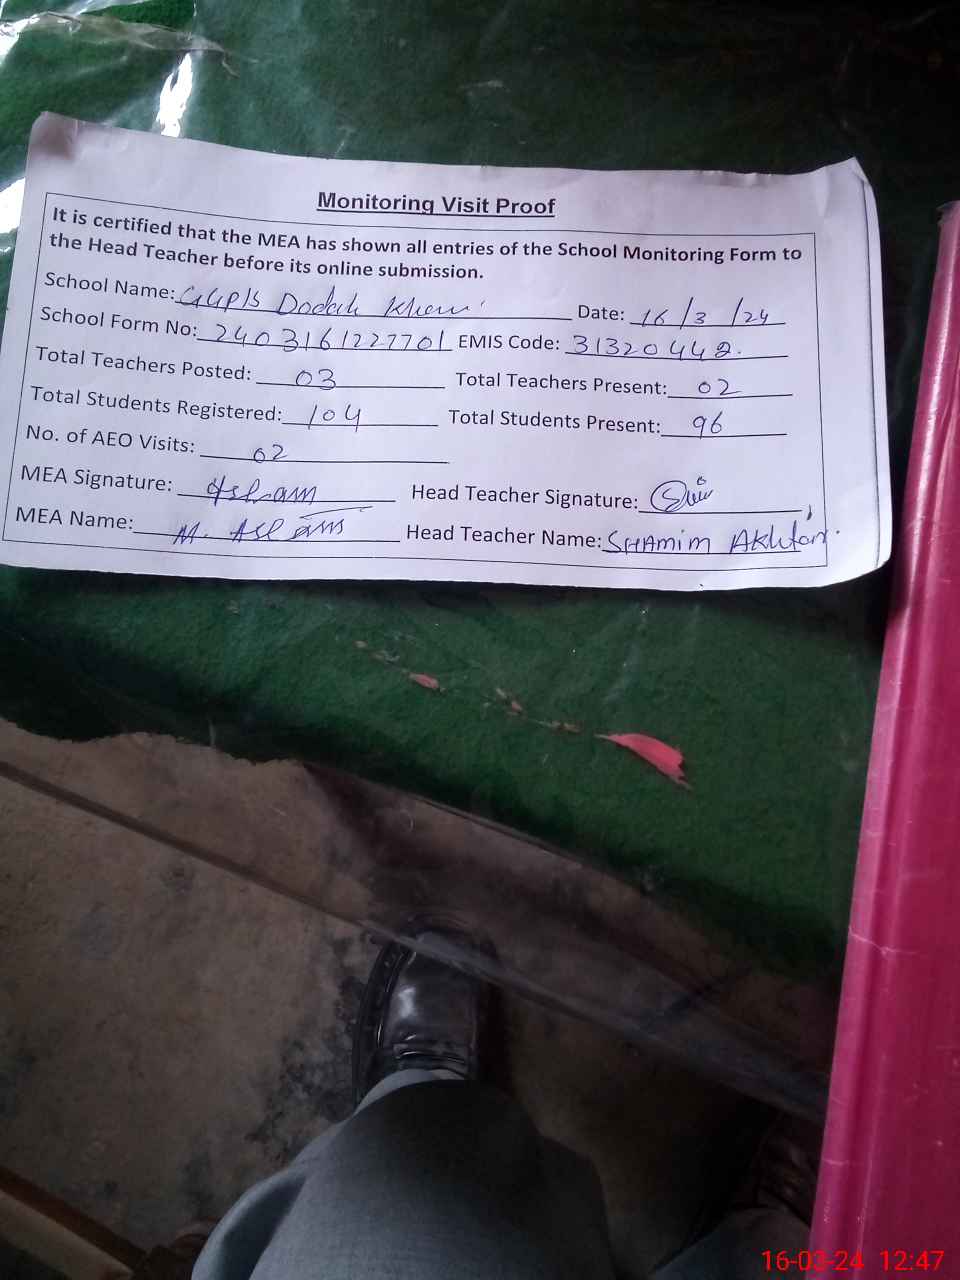 Monitoring Visit Proof
It is certified that the MEA has shown all entries of the School Monitoring Form to
the Head Teacher before its online submission.
School Name: GGP/S Dodah Date: 16/3/24
School Form No: 2403161227701 EMIS Code: 31320442.
Total Teachers Posted: 03 Total Teachers Present: 02
Total Students Registered: 104 Total Students Present: 96
No. of AEO Visits: 02
MEA Signature: Aslam Head Teacher Signature:
MEA Name: M. Aslam Head Teacher Name: SHAMIM AKhtar.
16-03-24 12:47